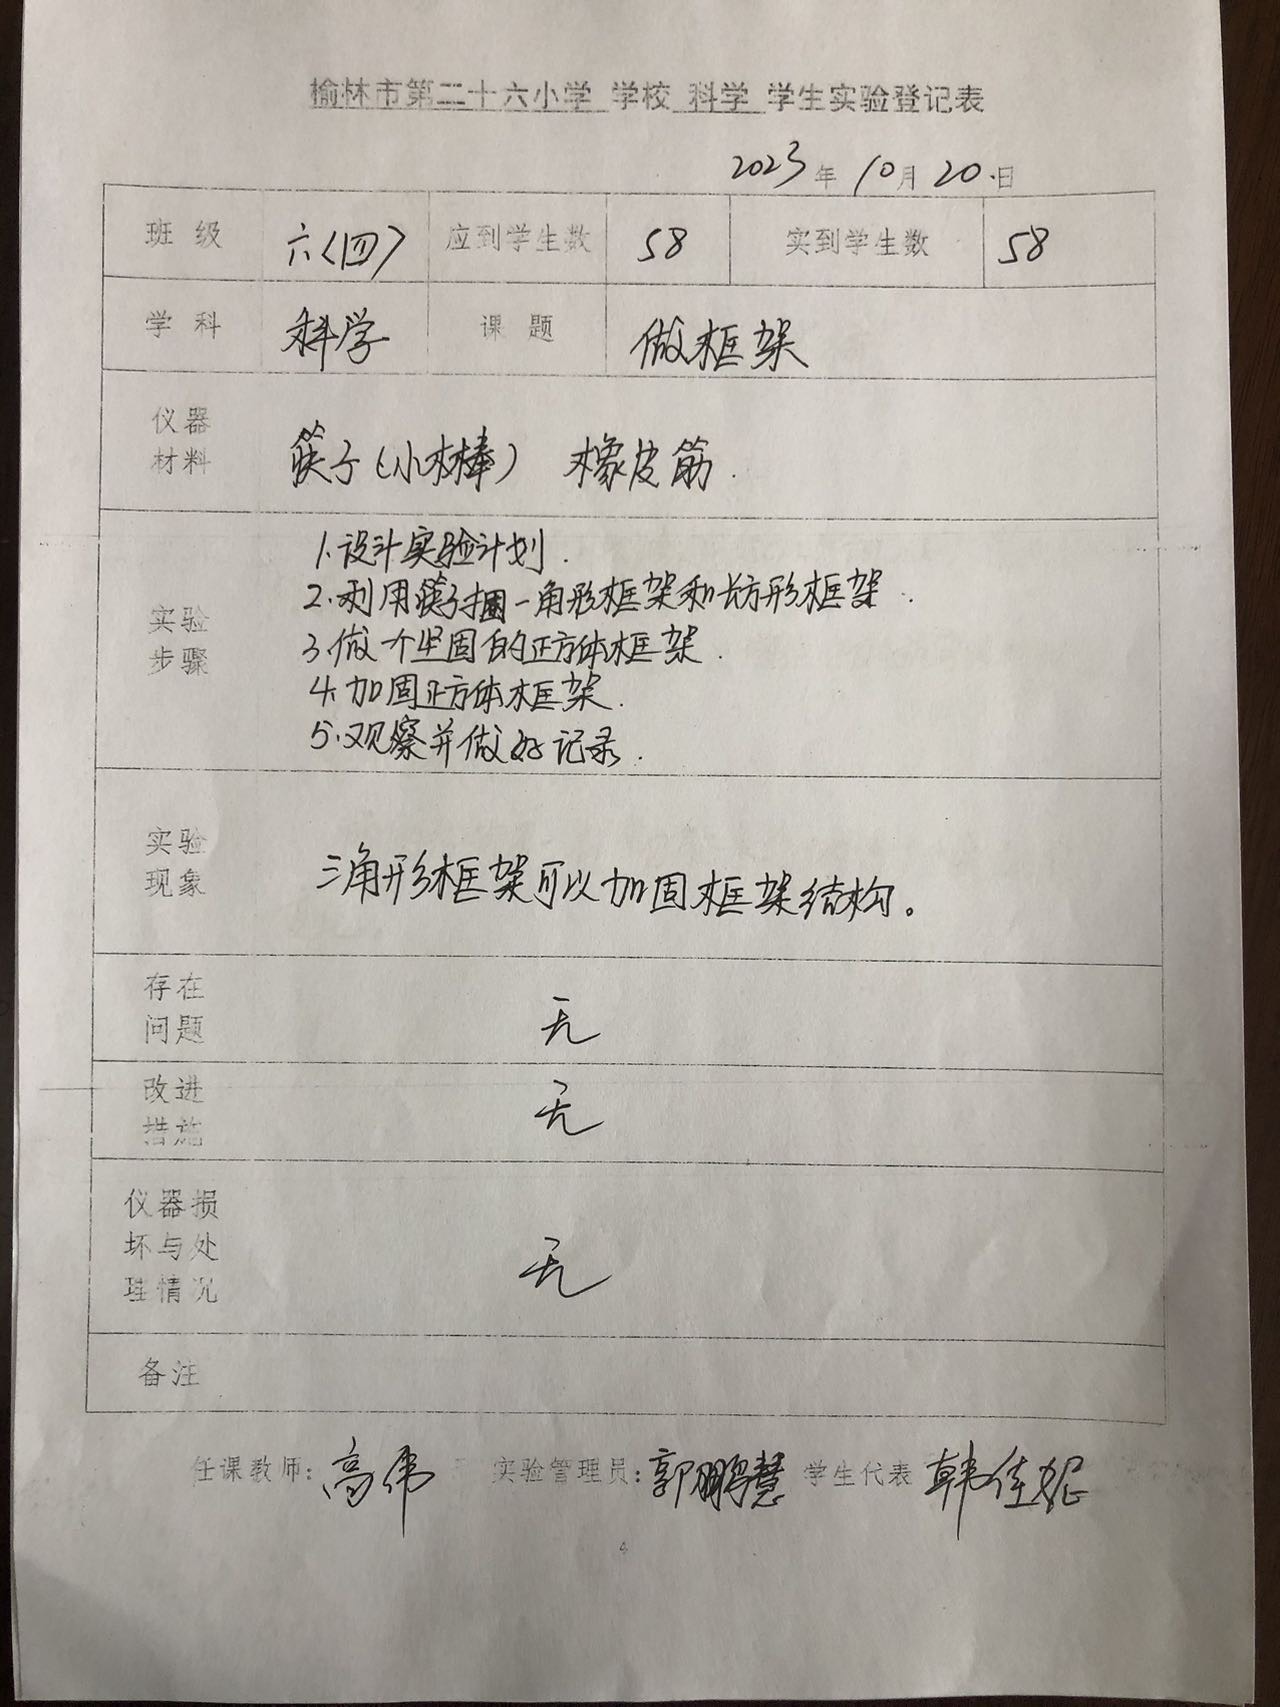 榆林市第二十六小学 学校 科学 学生实验登记表
2023年10月20日
班级 六(四) 应到学生数 58 实到学生数 58
学科 科学 课题 做框架
仪器
材料
筷子(小木棒) 橡皮筋.
实验
步骤
1.设计实验计划.
2.利用筷子捆一角形框架和长方形框架.
3.做个坚固的正方体框架.
4.加固正方体框架.
5.观察并做好记录.
实验
现象
三角形框架可以加固框架结构。
存在
问题
无
改进
措施
无
仪器损
坏与处
理情况
无
备注
任课教师:高伟 实验管理员:郭鹏慧 学生代表 韩佳妮
4